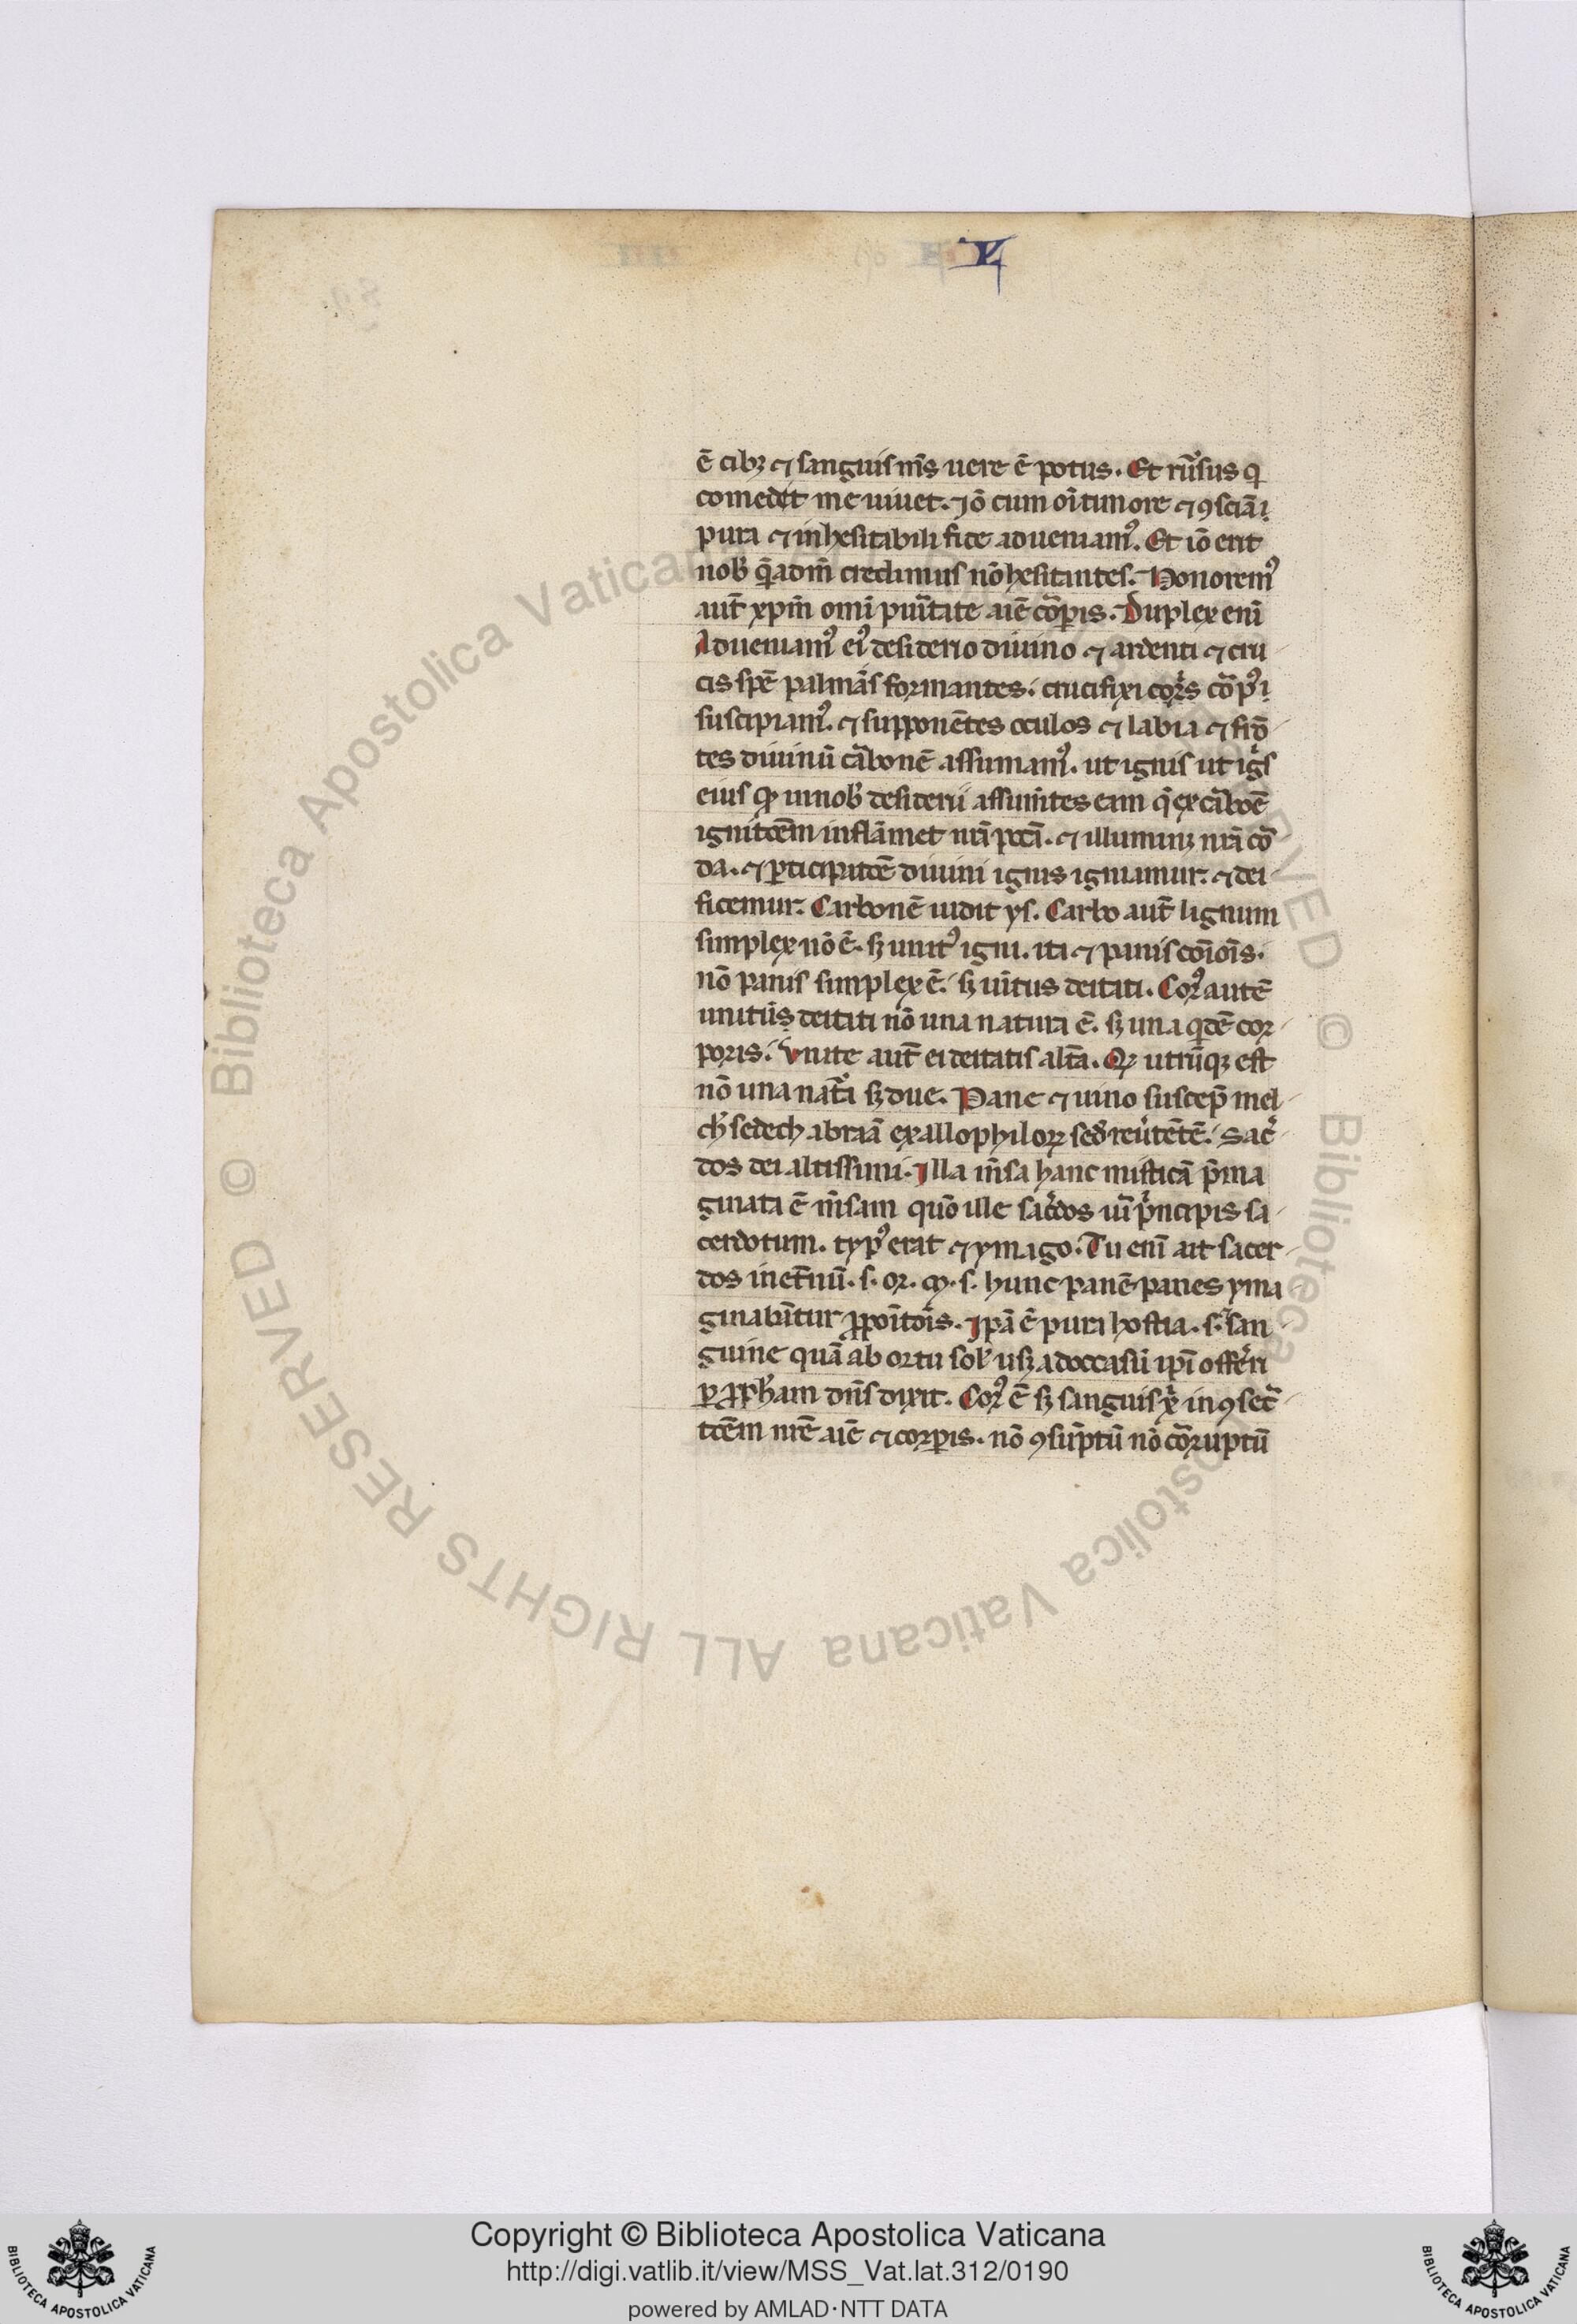 V
ē cibꝫ ⁊ sanguis m̄s uere ē potus. Et rūsus q̄
comedit me uiuet. Iō cum oī timore ⁊ ꝯsciā ı
pura ⁊ inhesitabili fide adueniamꝰ. Et iō erit
nob̄ q̄ad m̄ credimus nō hesitantes. Honoremꝰ
aut̄ xp̄m omī puritate aīe corꝑis. Duplex enī
Adueniamꝰ ei desiderio diuino ⁊ ardenti ⁊ cru
cis spē palmās formantes. crucifixi
suscipiamꝰ. ⁊ supponētes oculos ⁊ labia ⁊
tes diuinū carbonē assumamꝰ. ut ignis ut
eius in nob̄ desiderii
ignitōem inflāmet nrā pccā. ⁊ illuminꝫ nrā cō
da. ⁊ ꝑticipatōē diuini ignis igniamur. ⁊ dei
ficemur. Carbonē uidit ys. Carbo aut̄ lignum
simplex nō ē. sꝫ unitꝰ igni. ita ⁊ panis cōiōis.
nō panis simplex ē. sꝫ unitus deitati. Corꝰ autē
unitūs deitati nō una natura ē. sꝫ una qdē cor
poris. Vnite aut̄ ei deitatis altā. Qꝛ utrūqꝫ est
nō una natā sꝫ due. Pane ⁊ uino suscep̄ mel
ch̄sedech abraā ex allophiloꝝ sed reūtētē. Sac̄
dos dei altissimi. Illa m̄sa hanc misticā p̄ma
ginata ē m̄sam quō ille sac̄dos ūi p̄ncipis sa
cerdotum. typꝰ erat ⁊ ymago. Tu enī ait sacer
dos in et̄nū. s. or. m. s. hunc panē panes yma
ginabātur ꝓpoītōis. Ip̄ā ē pura hostia. s. san
guine quā ab ortu sol̄ usꝫ ad occasū ip̄i offeri
ꝑ ꝓph̄am dn̄s dixit. Corꝰ ē sꝫ sanguis x̄ in ꝯsec̄
tōem nrē aīe ⁊ corꝑis. nō ꝯsūptū nō corruptū
Copyright © Biblioteca Apostolica Vaticana
http://digi.vatlib.it/view/MSS_Vat.lat.312/0190
powered by AMLAD·NTT DATA
BIBLIOTECA APOSTOLICA VATICANA
BIBLIOTECA APOSTOLICA VATICANA
© Biblioteca Apostolica Vaticana ALL RIGHTS RESERVED
© Biblioteca Apostolica Vaticana ALL RIGHTS RESERVED